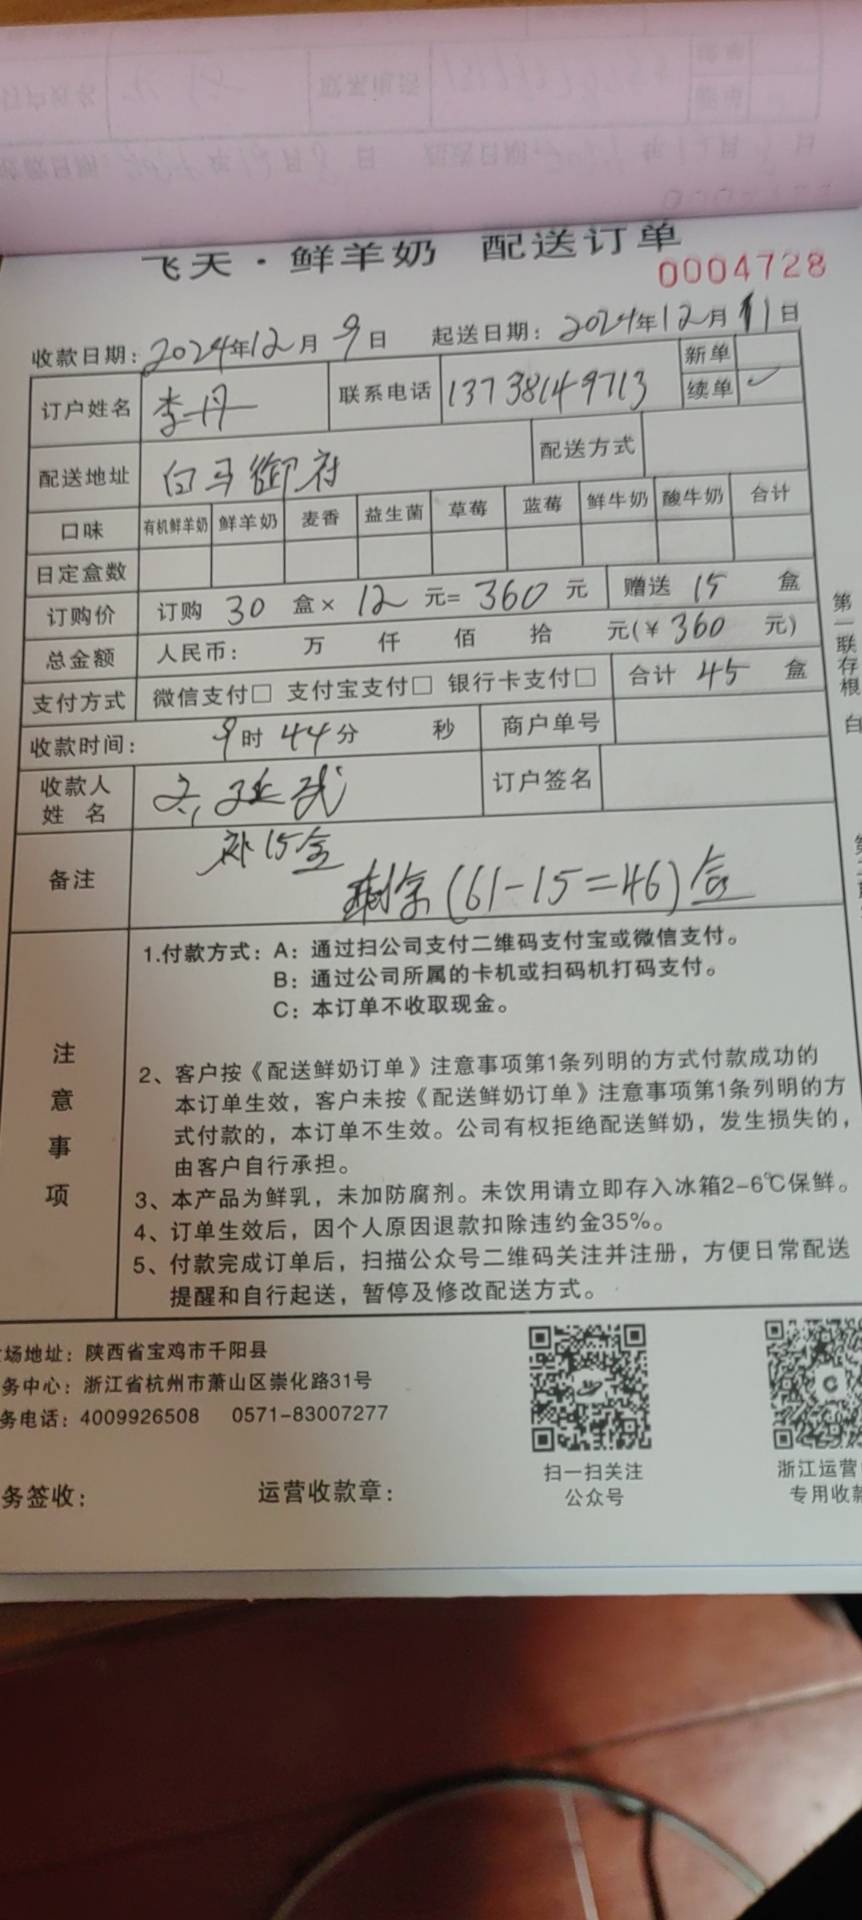 飞天·鲜羊奶 配送订单
0004728
收款日期：2024年12月9日 起送日期：2024年12月11日
订户姓名 李丹 联系电话 13738149713 新单
续单 ✓
配送地址 白马御府 配送方式
口味 有机鲜羊奶 鲜羊奶 麦香 益生菌 草莓 蓝莓 鲜牛奶 酸牛奶 合计
日定盒数
订购价 订购 30 盒× 12 元= 360 元 赠送 15 盒
总金额 人民币： 万 仟 佰 拾 元(¥ 360 元)
支付方式 微信支付□ 支付宝支付□ 银行卡支付□ 合计 45 盒
收款时间： 9时44分 秒 商户单号
收款人姓名 订户签名
备注 补15盒
剩余(61-15=46)盒
第一联存根 白
注意事项
1.付款方式：A：通过扫公司支付二维码支付宝或微信支付。
B：通过公司所属的卡机或扫码机打码支付。
C：本订单不收取现金。
2、客户按《配送鲜奶订单》注意事项第1条列明的方式付款成功的
本订单生效，客户未按《配送鲜奶订单》注意事项第1条列明的方
式付款的，本订单不生效。公司有权拒绝配送鲜奶，发生损失的，
由客户自行承担。
3、本产品为鲜乳，未加防腐剂。未饮用请立即存入冰箱2-6℃保鲜。
4、订单生效后，因个人原因退款扣除违约金35%。
5、付款完成订单后，扫描公众号二维码关注并注册，方便日常配送
提醒和自行起送，暂停及修改配送方式。
场地址：陕西省宝鸡市千阳县
务中心：浙江省杭州市萧山区崇化路31号
务电话：4009926508 0571-83007277
扫一扫关注
公众号
浙江运营
专用收款
务签收： 运营收款章：